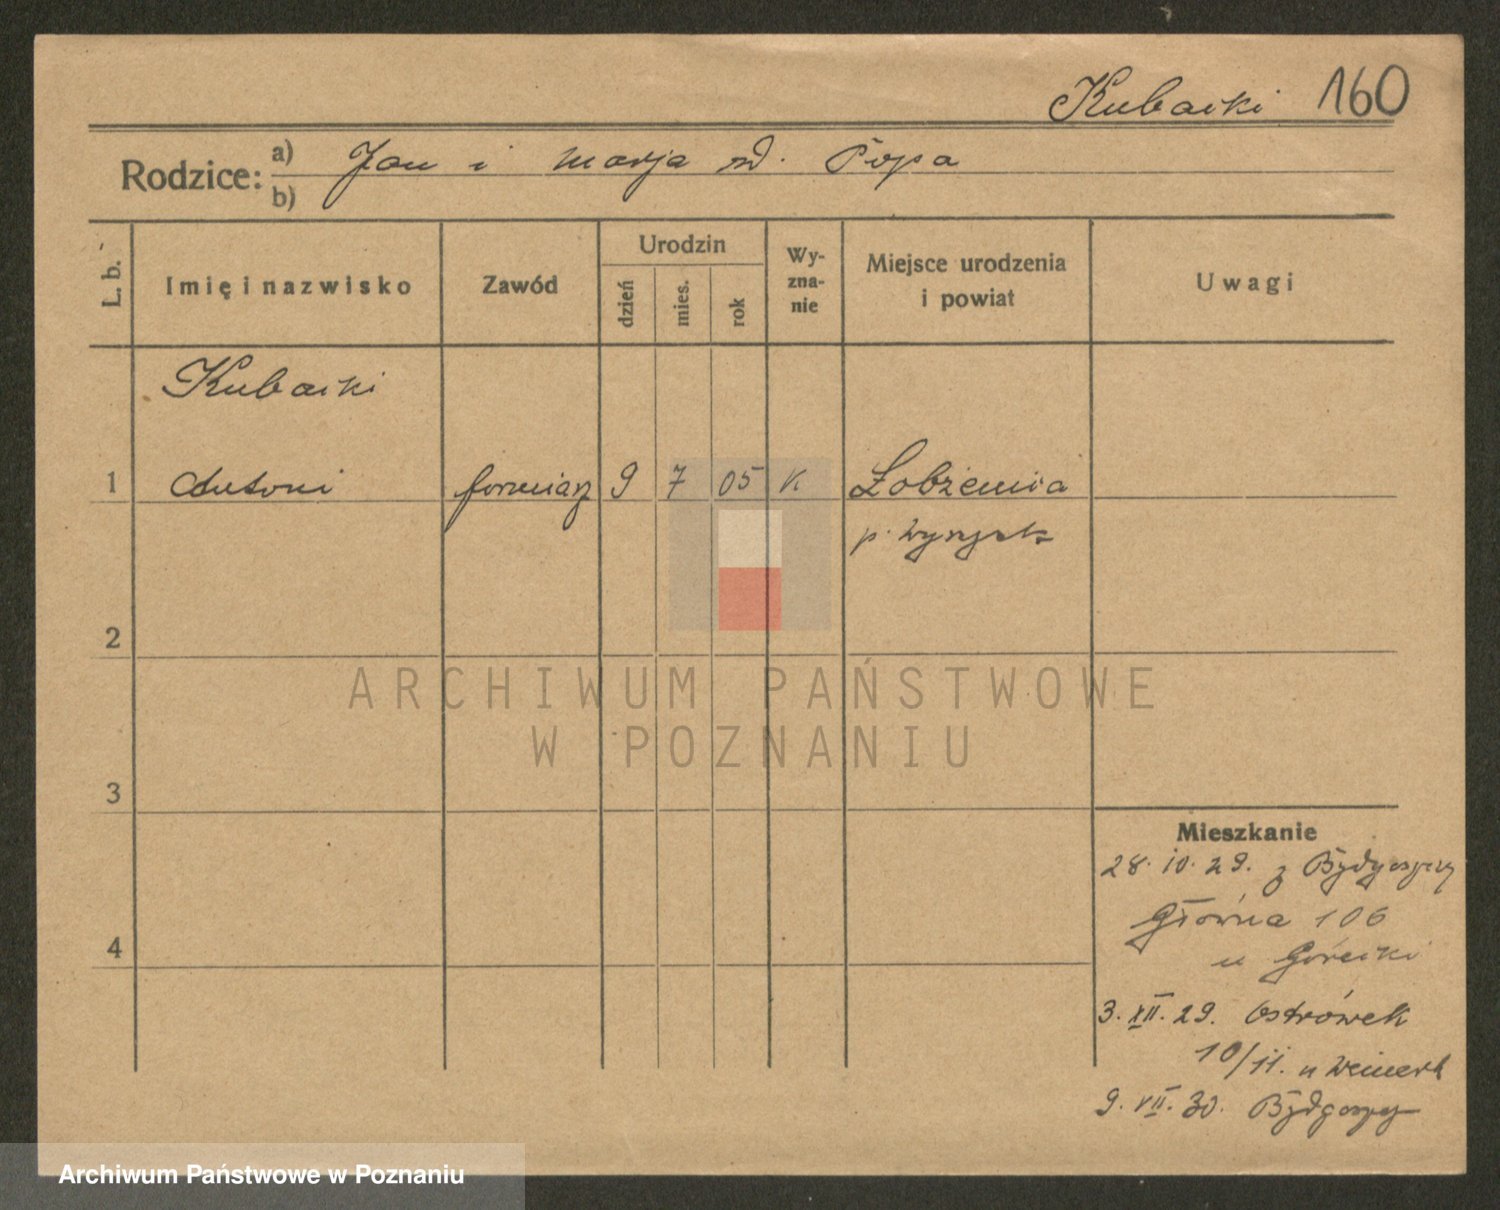 Kubacki 160
Rodzice: a) Jan i Marja zd. Popa
b)
L. b. Imię i nazwisko Zawód Urodzin dzień mies. rok Wy-zna-nie Miejsce urodzenia i powiat Uwagi
Kubacki
1 Antoni formiarz 9 7 05 K Łobżenica
p. Wyrzysk
2
ARCHIWUM PAŃSTWOWE
W POZNANIU
3
Mieszkanie
28. 10. 29. z Bydgoszczy
Główna 106
4
u Górecki
3. XII. 29. Ostrówek
10/11. u
9. VII. 30. Bydgoszcz
Archiwum Państwowe w Poznaniu